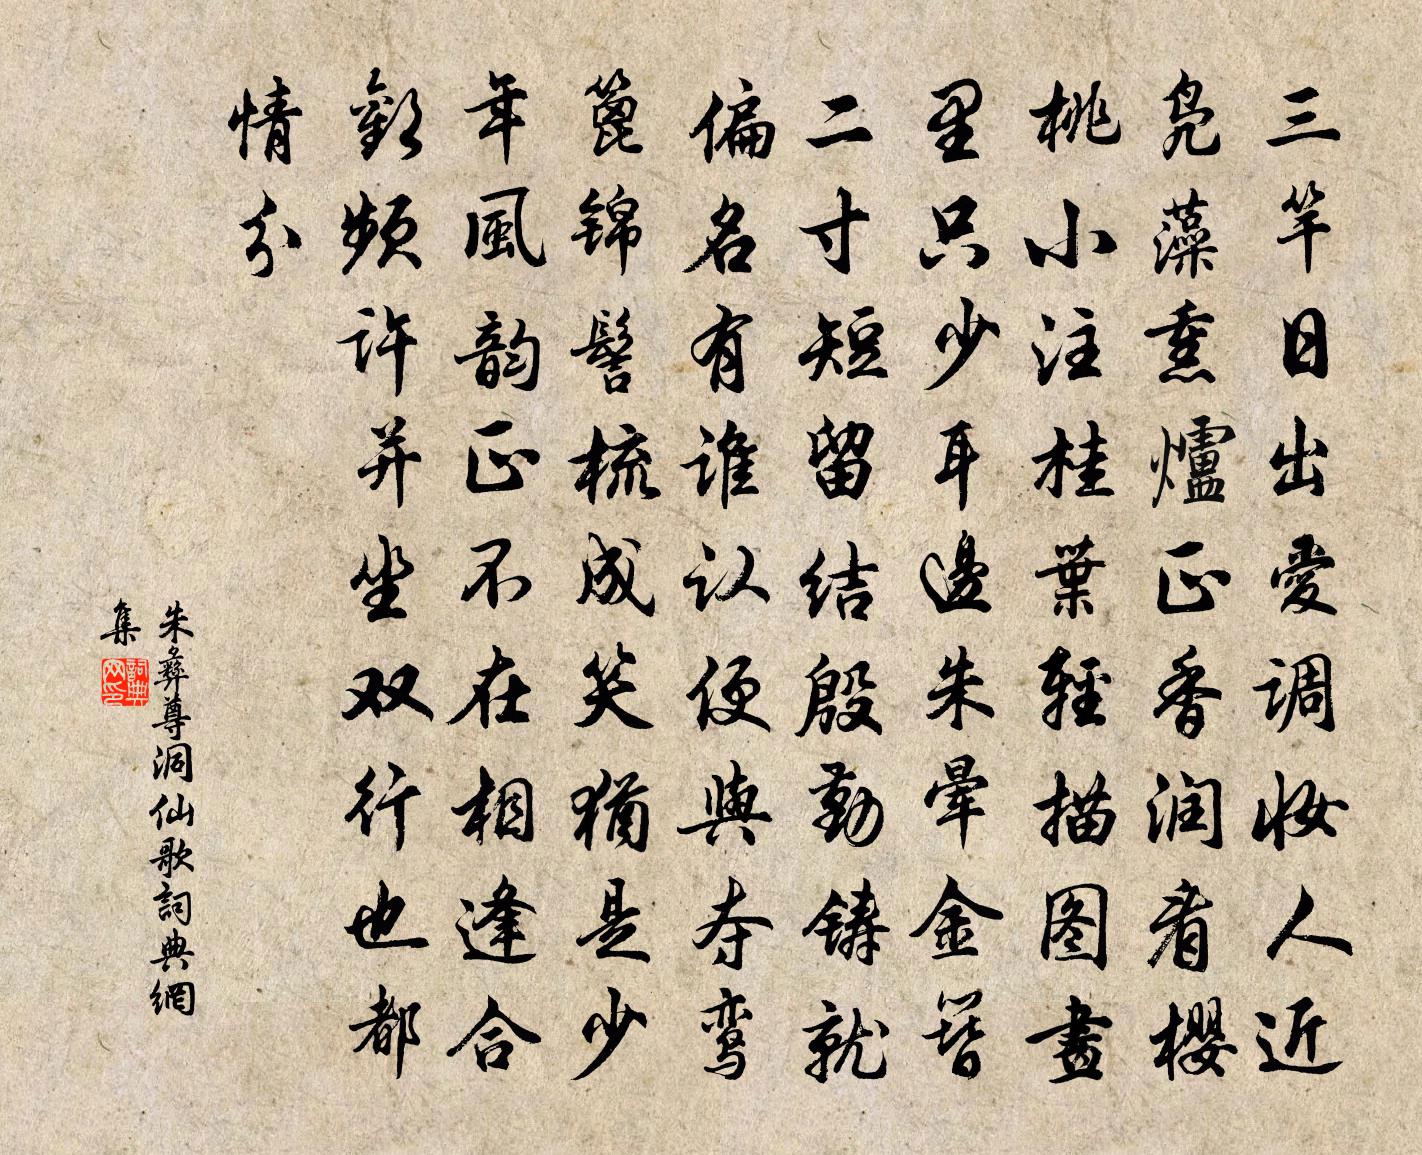 三竿日出愛調妝人近
鳧藻熏爐正香潤看櫻
桃小注桂葉輕描圖畫
里只少耳邊朱暈金簪
二寸短留結殷勤鑄就
偏名有誰认便與夺鸾
篦錦髻梳成笑猶是少
年風韵正不在相逢合
歡頻許并坐双行也都
情分
朱彝尊洞仙歌詞典網
集
詞典网印